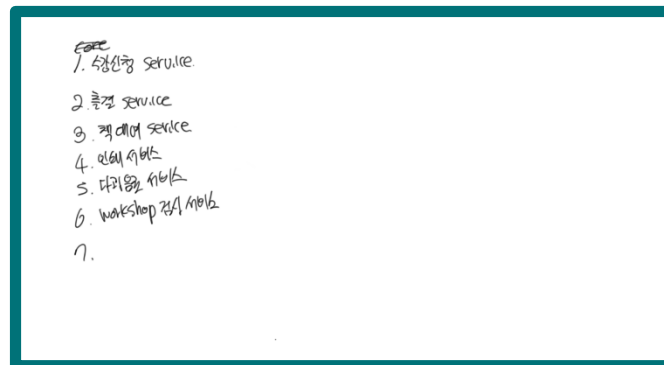 1. 수강신청 service.
2. 출결 service
3. 책 대여 service
4. 인쇄 서비스
5. 다과 서비스
6. workshop 검색 서비스
7.